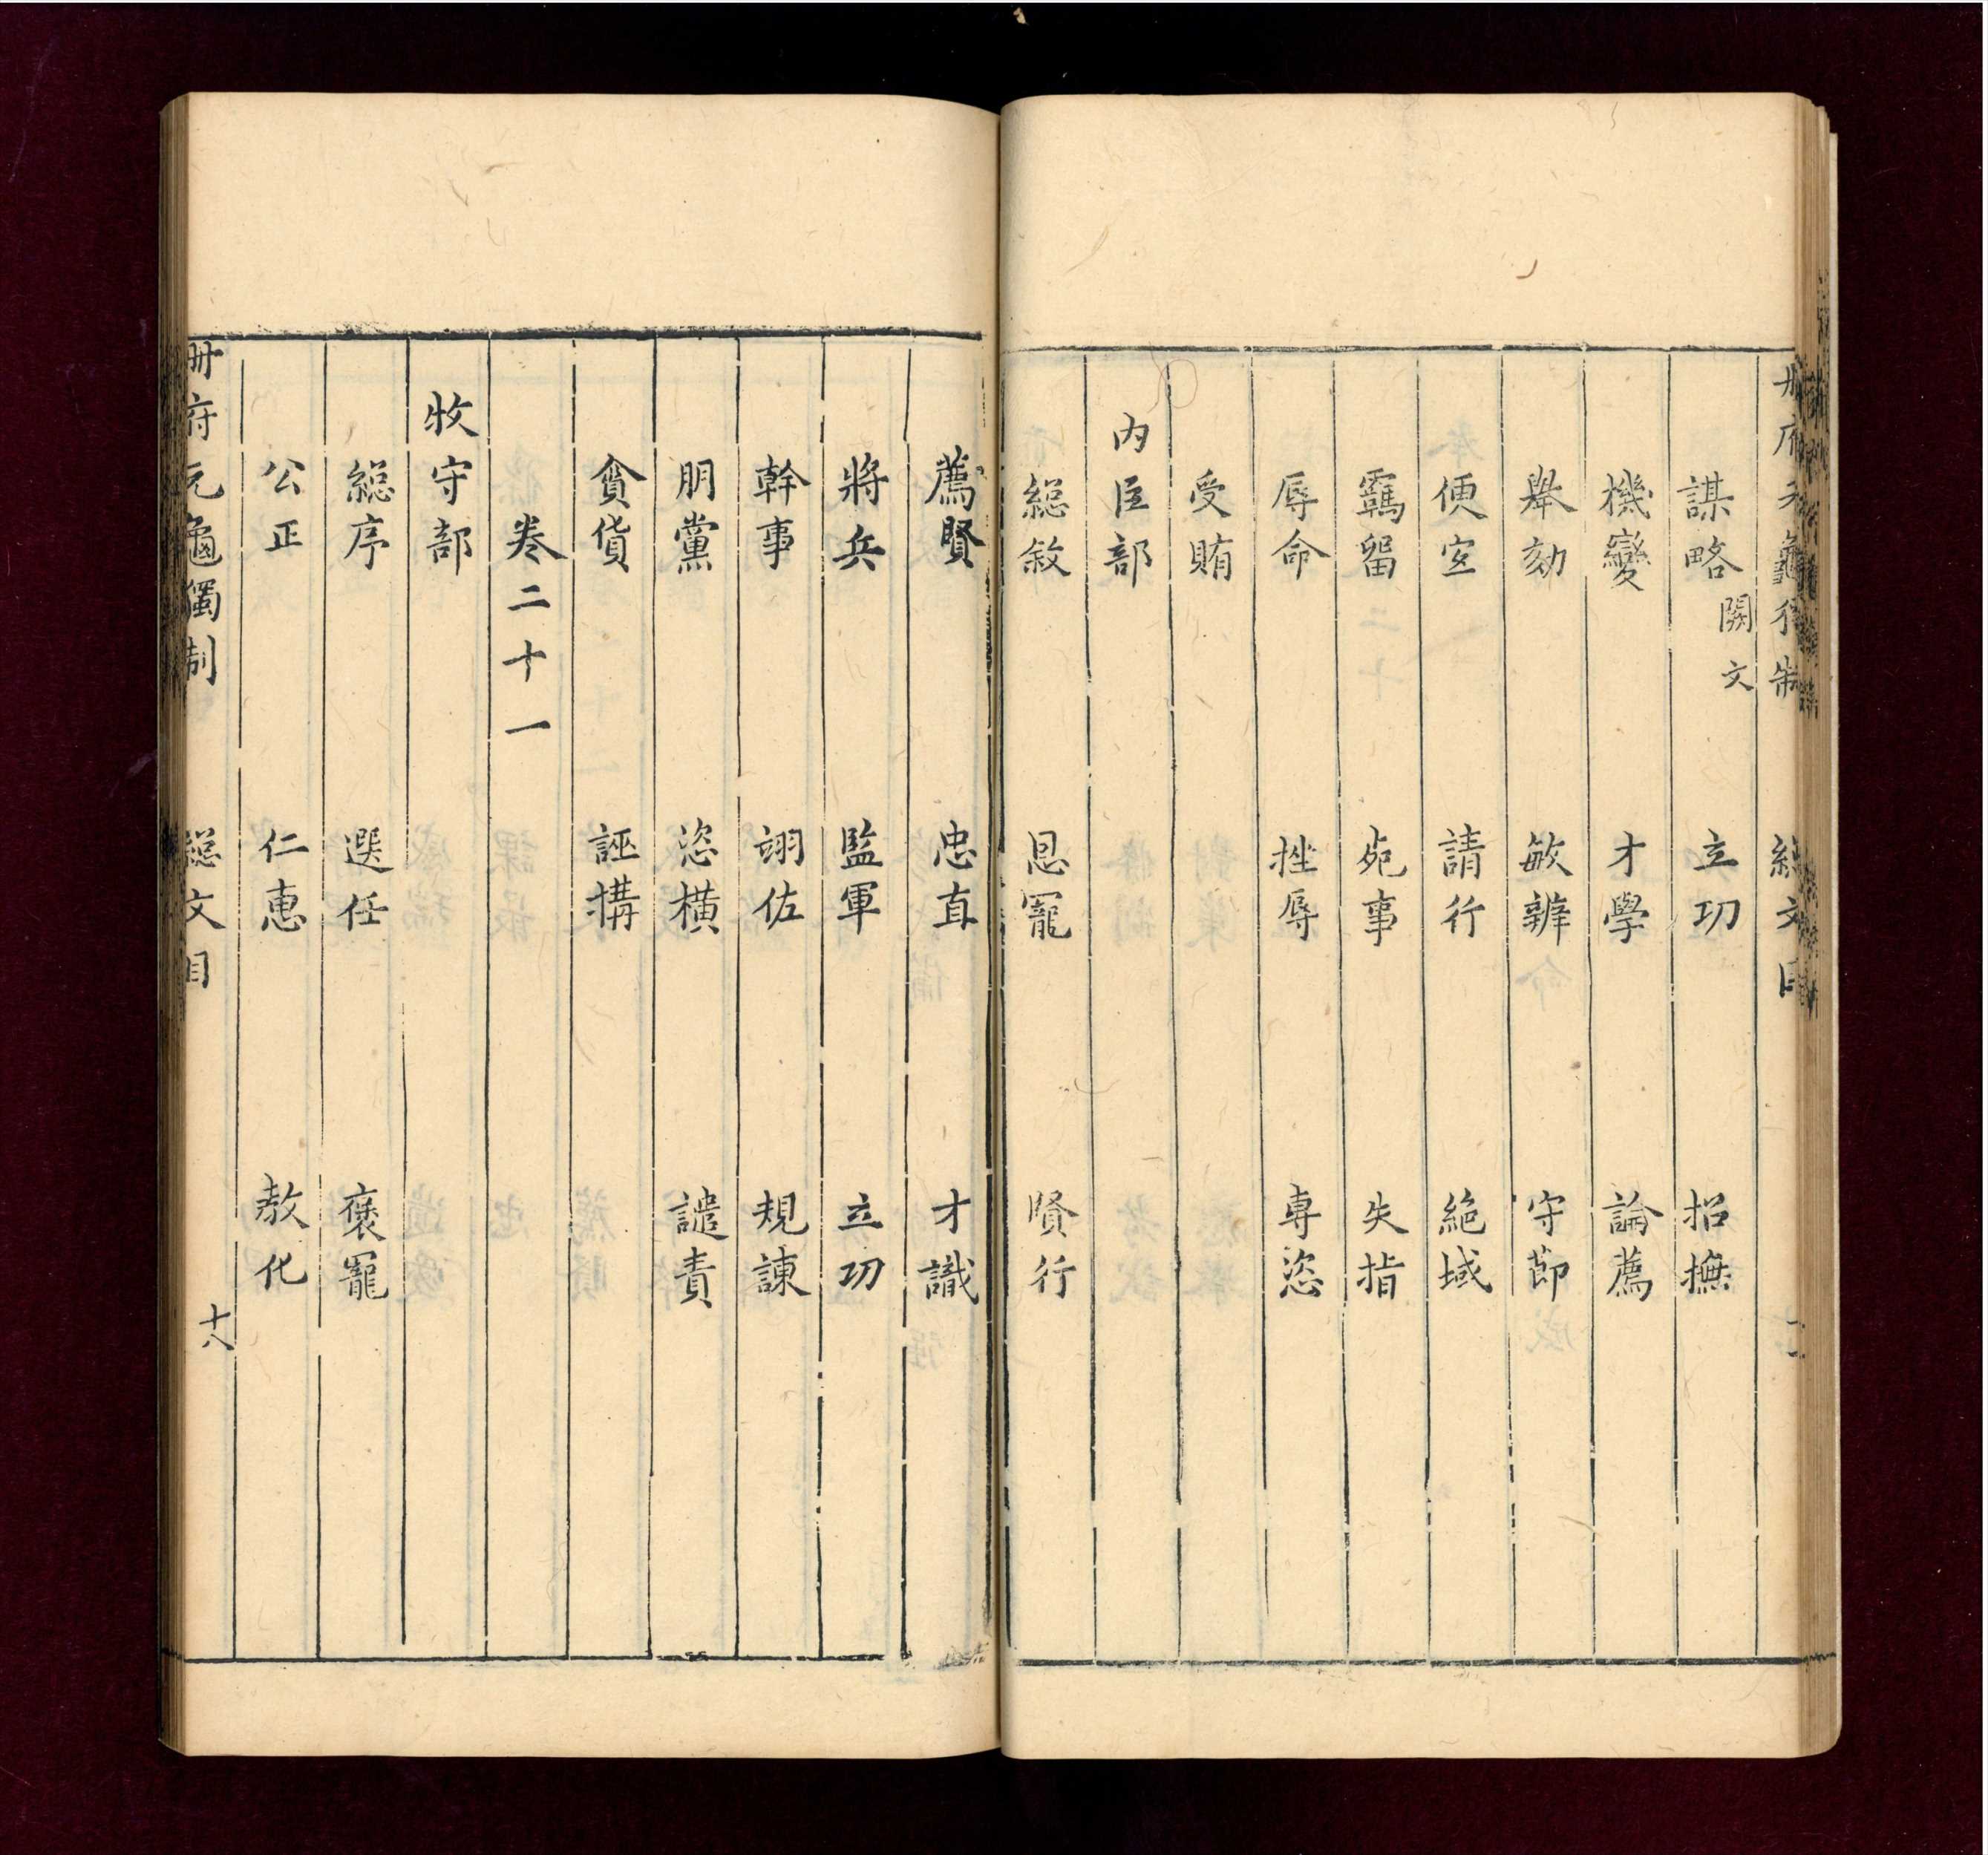 冊府元龜獨制 総文目
謀略 闕文 立功 招撫
機變 才學 論薦
舉劾 敏辨 守節
便宐 請行 絕域
羈留 死事 失指
辱命 挫辱 専恣
受賄
内臣部
総敘 恩寵 賢行
薦賢 忠直 才識
將兵 監軍 立功
幹事 翊佐 規諫
朋黨 恣橫 譴責
貪貨 誣構
卷二十一
牧守部
総序 選任 褒寵
公正 仁惠 敎化
冊府元龜獨制 総文目 十八